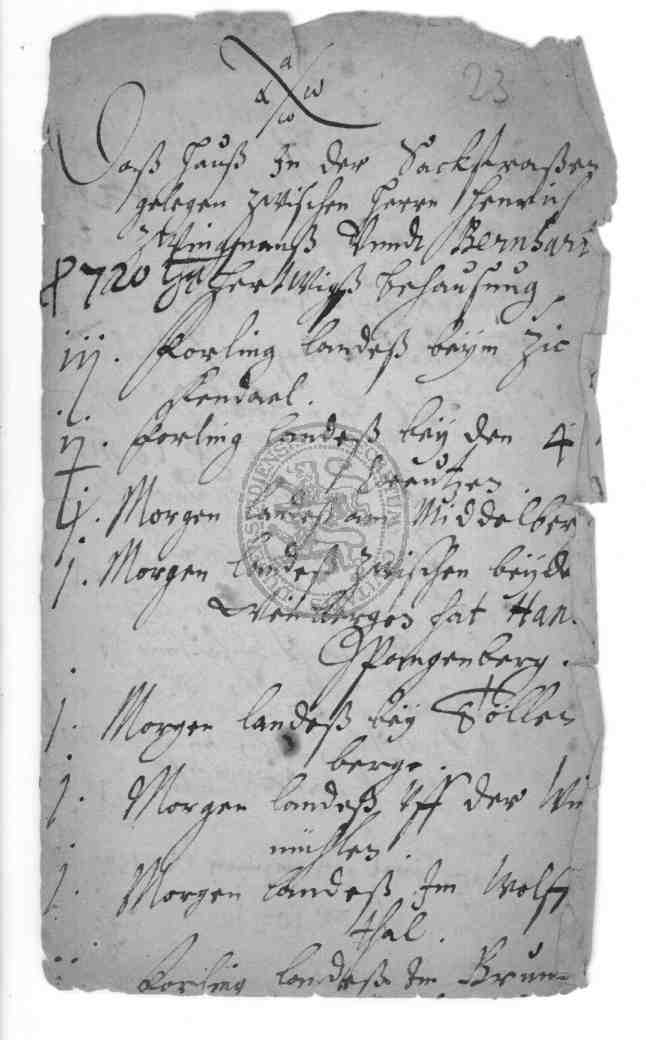 23
Daß Hauß In der Sackstraßen
gelegen zwischen Herrn Henrich
Vnndt Bernhart
720 Hertwigß behausung
iij. Forling landeß beym Zic
kendael.
ij. Forling landeß bey den 4
Creutzen
Morgen landeß am Middelber
j. Morgen landeß zwischen beyde
Weinberges hat Han.
Spangenberg.
j. Morgen landeß bey Söllen
berge.
j. Morgen landeß vff der Wi
mühlen.
j. Morgen landeß Im Wolfs
thal.
ij Forling landeß Im Brun=